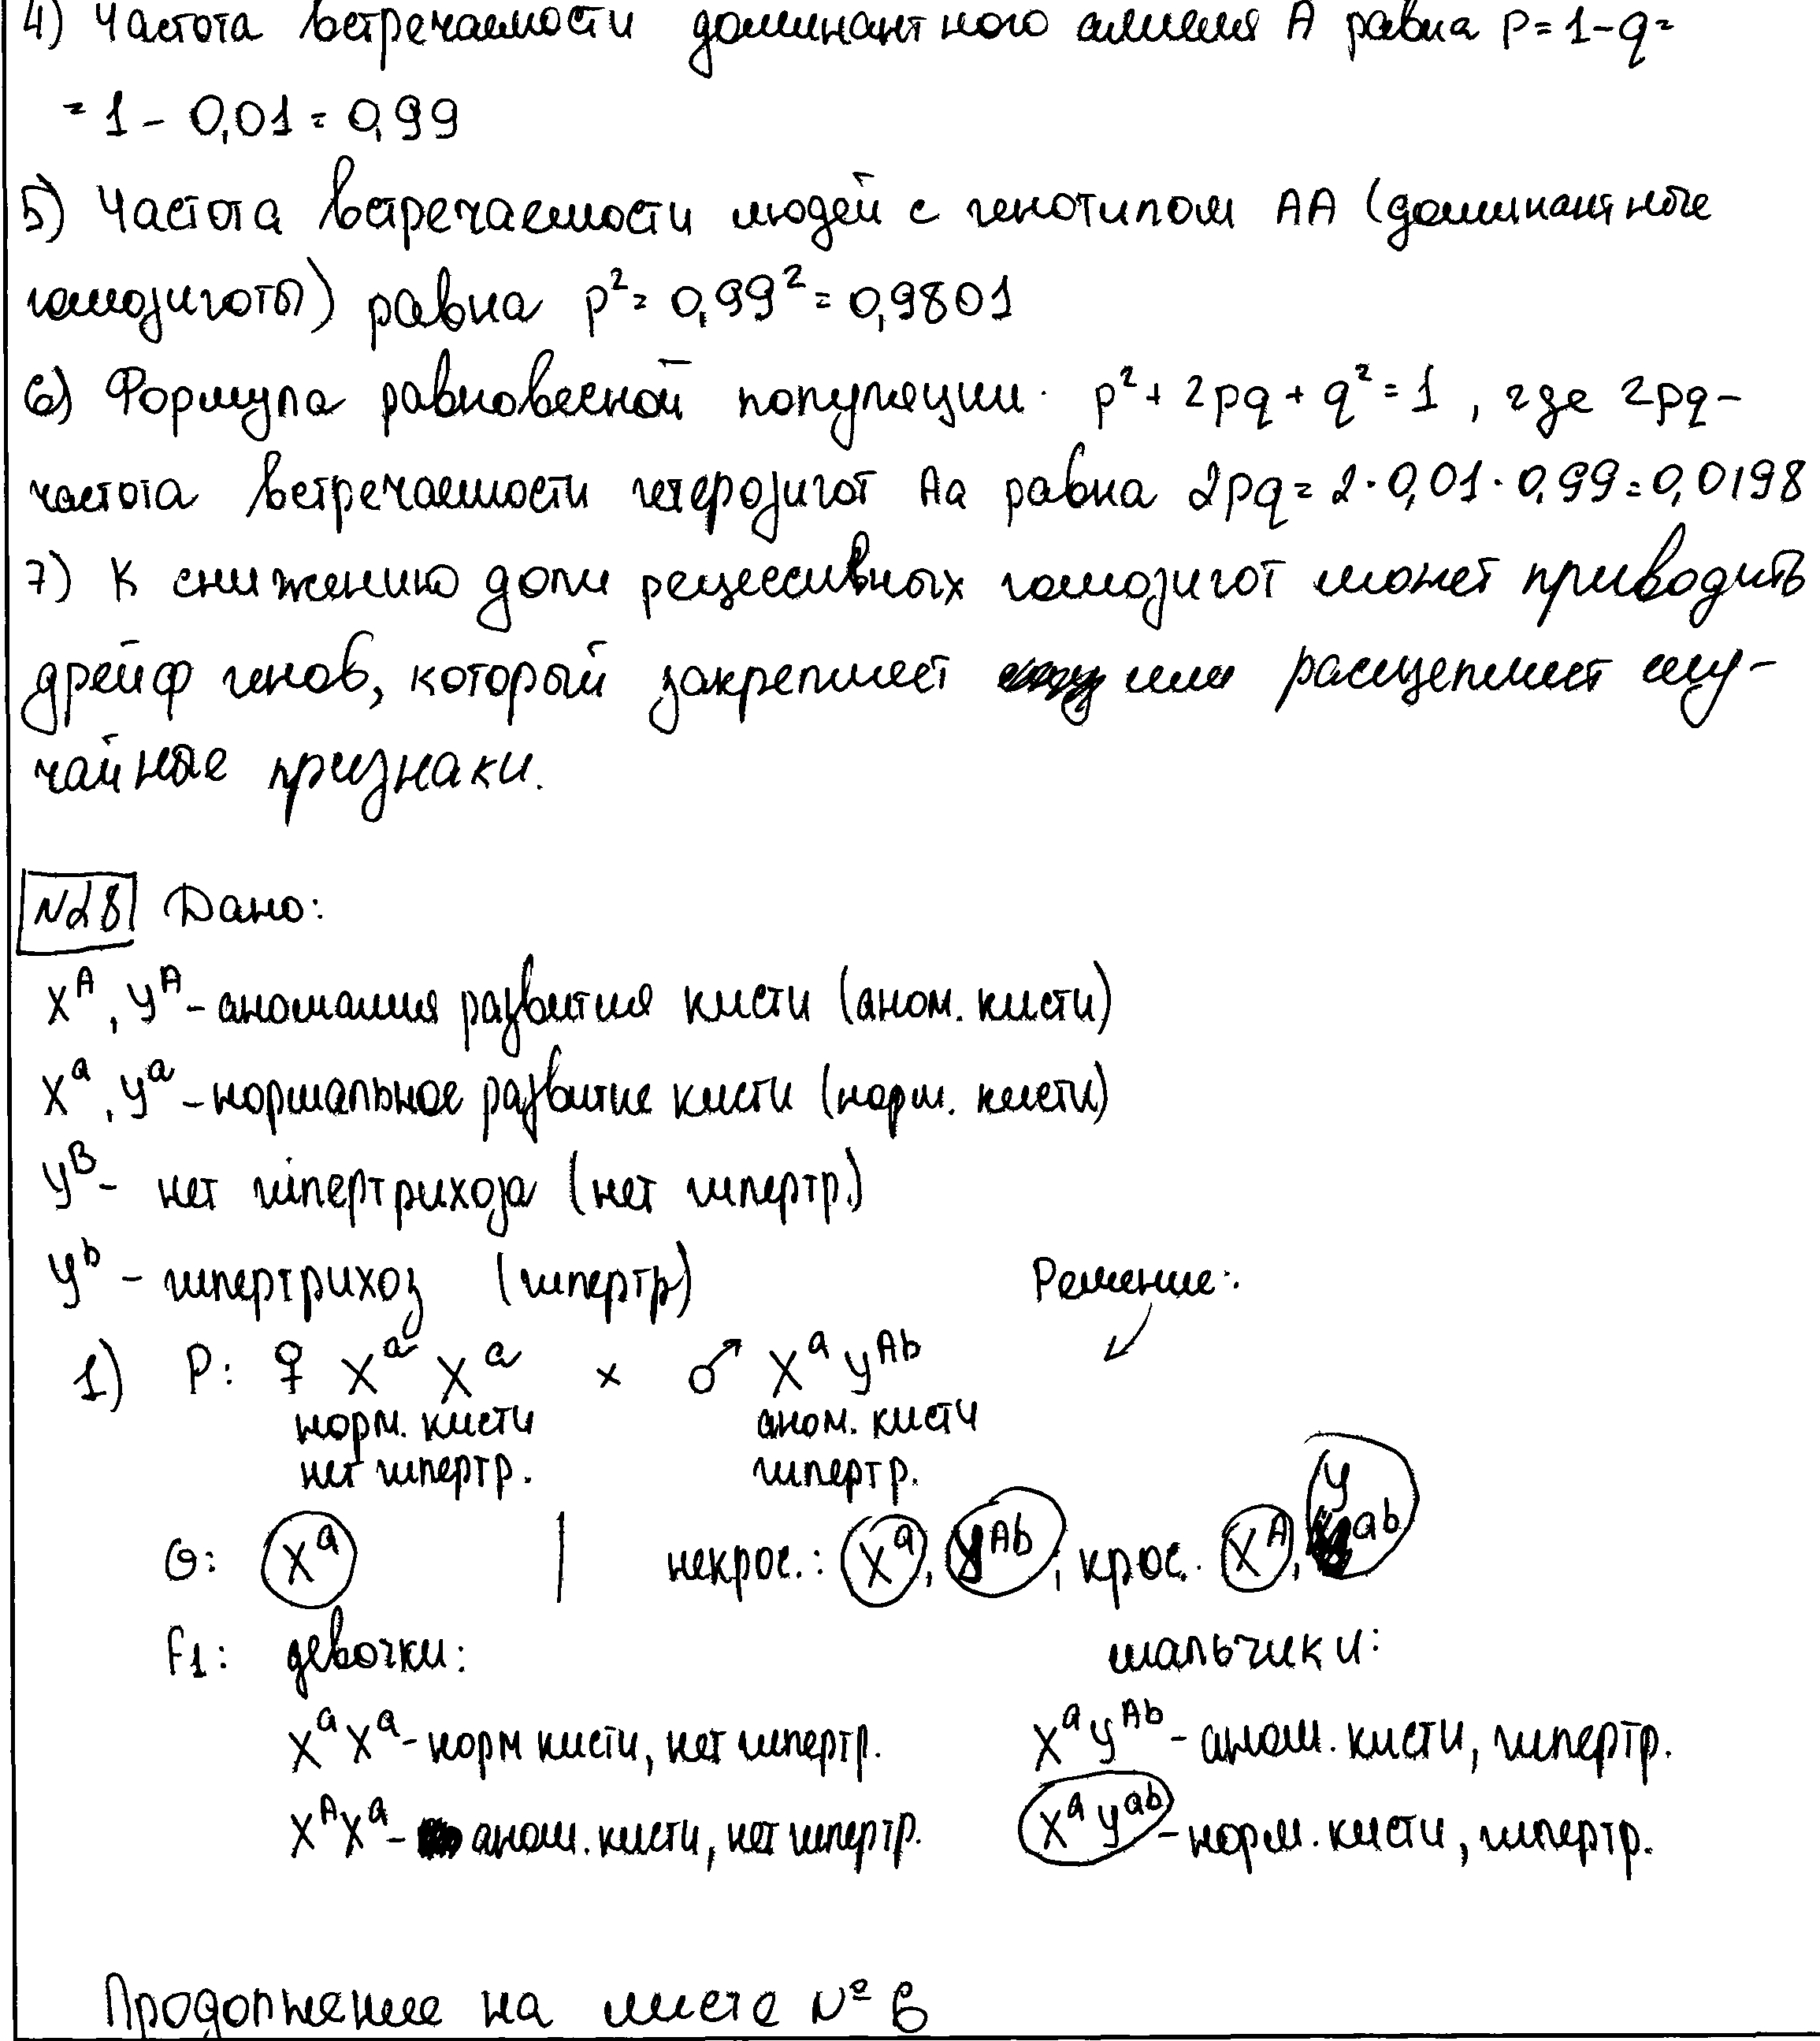 4) Частота встречаемости доминантного аллеля А равна p=1-q=
=1-0,01=0,99
5) Частота встречаемости людей с генотипом АА (доминантные
гомозиготы) равна p²=0,99²=0,9801
6) Формула равновесной популяции: p²+2pq+q²=1, где 2pq-
частота встречаемости гетерозигот Аа равна 2pq=2·0,01·0,99=0,0198
7) К снижению доли рецессивных гомозигот может приводить
дрейф генов, который закрепляет или расщепляет слу-
чайные признаки.
№28 Дано:
Xᴬ, Yᴬ - аномалия развития кисти (аном. кисти)
Xᵃ, Yᵃ - нормальное развитие кисти (норм. кисти)
Yᴮ - нет гипертрихоза (нет гипертр.)
Yᵇ - гипертрихоз (гипертр)
Решение:
1) P: ♀ XᵃXᵃ × ♂ XᵃYᴬᵇ
норм. кисти аном. кисти
нет гипертр. гипертр.
G: Xᵃ | некрос.: Xᵃ, Yᴬᵇ; крос.: Xᴬ, Yᵃᵇ
F1: девочки: мальчики:
XᵃXᵃ - норм кисти, нет гипертр. XᵃYᴬᵇ - аном. кисти, гипертр.
XᴬXᵃ - аном. кисти, нет гипертр. XᵃYᵃᵇ - норм. кисти, гипертр.
Продолжение на листе № 6